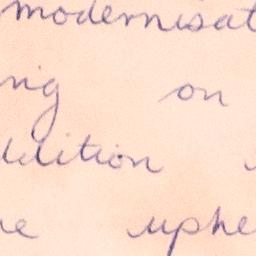 modernisat
ng on
dition
e uphe